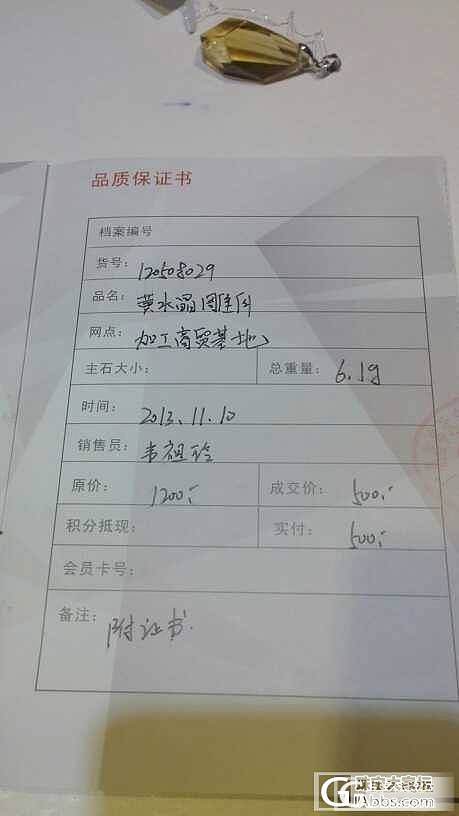 品质保证书
档案编号
货号: 120508029
品名: 黄水晶
网点: 加工商贸基地
主石大小: 总重量: 6.1g
时间: 2013.11.10
销售员: 韦祖玲
原价: 1200.- 成交价: 500.-
积分抵现: 实付: 500.-
会员卡号:
备注: 附证书.
珠宝大家坛
Gabbs.com